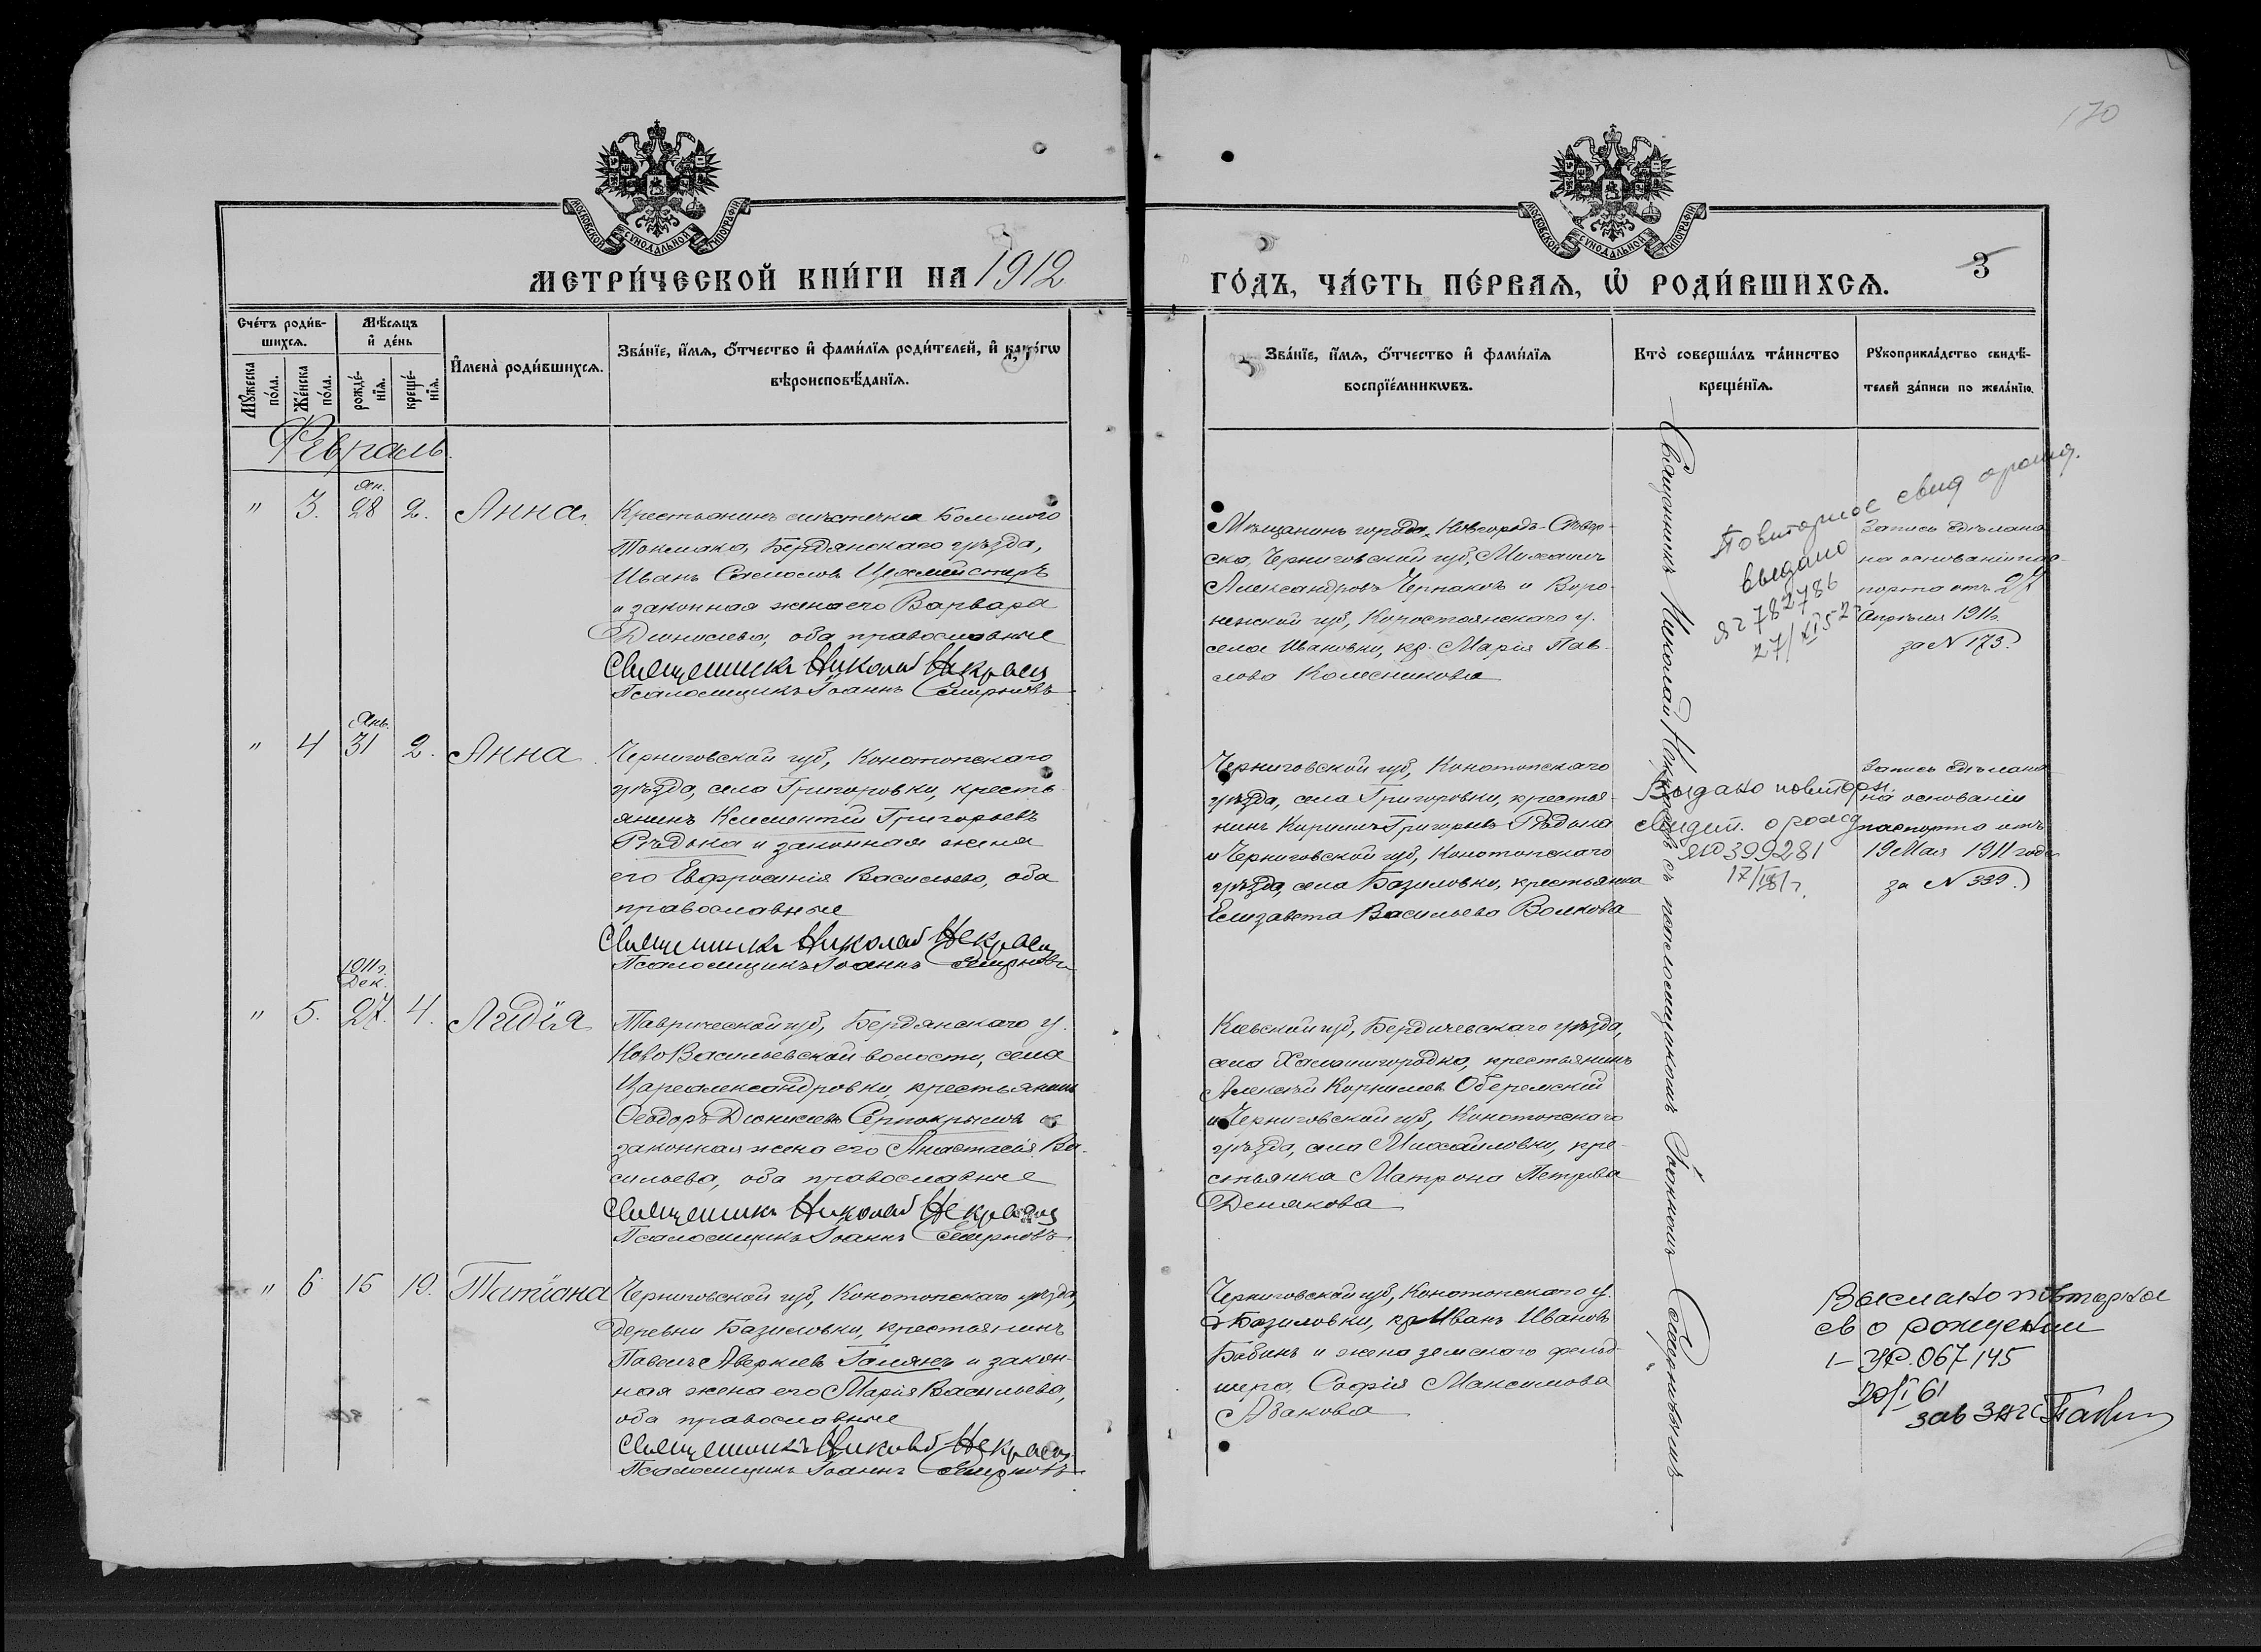 170
МОСКОВСКОЙ СѴНОДАЛЬНОЙ ТИПОГРАФІИ
МОСКОВСКОЙ СѴНОДАЛЬНОЙ ТИПОГРАФІИ
МЕТРИ́ЧЕСКОЙ КНИ́ГИ НА 1912
ГО́ДЪ, ЧА́СТЬ ПЕ́РВАѦ, Ѡ҆ РОДИ́ВШИХСѦ.
3
Сче́тъ роди́в-
шихсѧ.
Мѣ́сѧцъ
и҆ де́нь
Мꙋ́жеска
по́ла.
Же́нска
по́ла.
рожде́-
нїѧ.
креще́-
нїѧ.
И҆мена̀ роди́вшихсѧ.
Зва́нїе, и҆́мѧ, ѻ҆́тчество и҆ фамѝлїѧ роди́телей, и҆ како́гѡ
вѣроисповѣ́данїѧ.
Зва́нїе, и҆́мѧ, ѻ҆́тчество и҆ фамѝлїѧ
воспрїе́мникѡвъ.
Кто̀ соверша́лъ та́инство
креще́нїѧ.
Рꙋкоприкла́дство свидѣ́-
телей за́писи по жела́нїю.
Февраль
" 3. Ян. 28 2. Анна
Крестьянинъ мѣстечка Большого
Токмака, Бердянскаго уѣзда,
Иванъ Цехмейстеръ
и законная жена его Варвара
Діонисіева, оба православные
Священникъ Николай Некрасов
Псаломщикъ Іоаннъ Смирновъ
Мѣщанинъ города Новгородъ-Сѣвер-
ска, Черниговской губ, Михаилъ
Александровъ Черпаковъ и Воро-
нежской губ, Коротоянскаго у.
села Ивановки, кр. Марія Пав-
лова Колесникова
Повиторное свид о рожд.
выдано
782786
Запись сдѣлана
на основаніи пас-
порта отъ 27
Апрѣля 1911г.
за N 173.
" 4 Янв. 31 2. Анна
Черниговской губ, Конотопскаго
уѣзда, села Григоровки, кресть-
янинъ Климентій Григорьевъ
Рѣдька и законная жена
его Евфросинія Васильева, оба
православные
Священникъ Николай Некрасов
Псаломщикъ Іоаннъ Смирновъ
Черниговской губ, Конотопскаго
уѣзда, села Григоровки, крестья-
нинъ Кириллъ Григорьевъ Рѣдька
и Черниговской губ, Конотопскаго
уѣзда, села Базиловки, крестьянка
Елизавета Васильева Волкова
Выдано повиторн.
свидет. о рожд
399281
Запись сдѣлана
на основаніи
паспорта отъ
19 Мая 1911 года
за N 339.
" 5. 1911г. Дек. 27. 4. Лидія
Таврической губ, Бердянскаго у.
Ново Васильевской волости, села
Цареалександровки, крестьянинъ
Ѳеодоръ Діонисіевъ Серпокрыловъ и
законная жена его Анастасія Ва-
сильева, оба православные
Священникъ Николай Некрасов
Псаломщикъ Іоаннъ Смирновъ
Кіевской губ, Бердичевскаго уѣзда,
села Халаимгородка, крестьянинъ
Алексѣй Корнилев Оберемскій
и Черниговской губ, Конотопскаго
уѣзда, села Михайловки, кре-
стьянка Матрона Петрова
Демякова
" 6 15 19. Татіана
Черниговской губ, Конотопскаго уѣзда,
деревни Базиловки, крестьянинъ
Павелъ Аверкіевъ Галянъ и закон-
ная жена его Марія Васильева,
оба православные
Священникъ Николай Некрасов
Псаломщикъ Іоаннъ Смирновъ
Черниговской губ, Конотопскаго у.
д Базиловки, кр Иванъ Ивановъ
Бабинъ и жена земскаго фельд-
шера Софія Максимова
Абакова
Выслано повторное
св о рождении
1-УР. 067145
20/I 61
зав загс
Священникъ Николай Некрасовъ съ псаломщикомъ Іоанномъ Смирновымъ